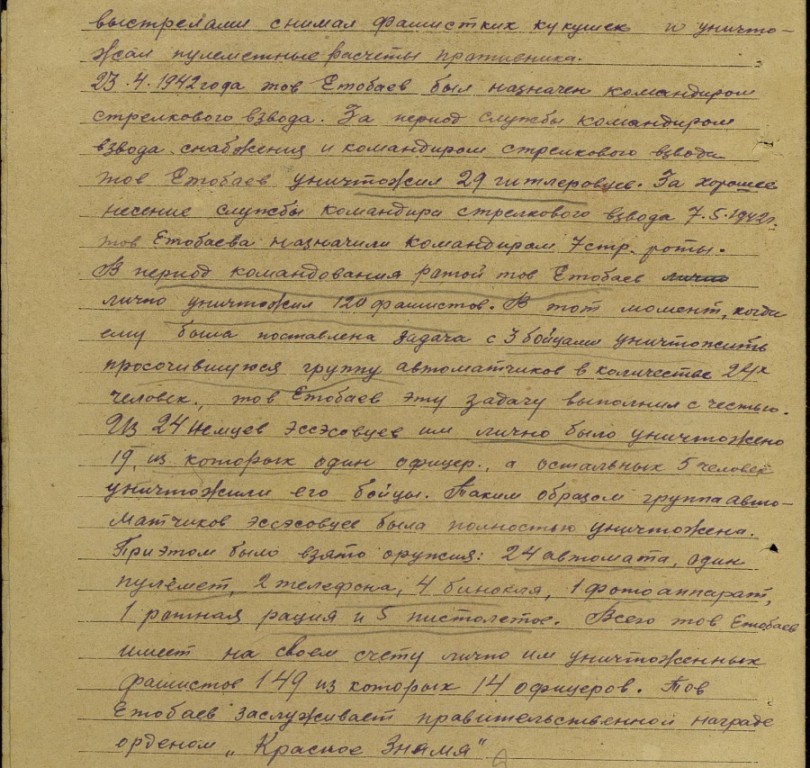 выстрелами снимал фашистких кукушек и уничто-
жал пулеметные расчеты противника.
23.4.1942 года тов Етобаев был назначен командиром
стрелкового взвода. За период службы командиром
взвода снабжения и командиром стрелкового взвода
тов Етобаев уничтожил 29 гитлеровцев. За хорошее
несение службы командира стрелкового взвода 7.5.1942г.
тов Етобаева назначили командиром 7 стр. роты.
В период командования ротой тов Етобаев лично
лично уничтожил 120 фашистов. В тот момент, когда
ему была поставлена задача с 3 бойцами уничтожить
просочившуюся группу автоматчиков в количестве 24х
человек., тов Етобаев эту задачу выполнил с честью.
Из 24 немцев эссэсовцев им лично было уничтожено
19, из которых один офицер., а остальных 5 человек
уничтожили его бойцы. Таким образом группа авто-
матчиков эссэсовцев была полностью уничтожена.
При этом было взято оружия: 24 автомата, один
пулемет, 2 телефона, 4 бинокля, 1 фотоаппарат,
1 ротная рация и 5 пистолетов. Всего тов Етобаев
имеет на своем счету лично им уничтоженных
фашистов 149 из которых 14 офицеров. Тов
Етобаев заслуживает правительственной награде
орденом „Красное Знамя"